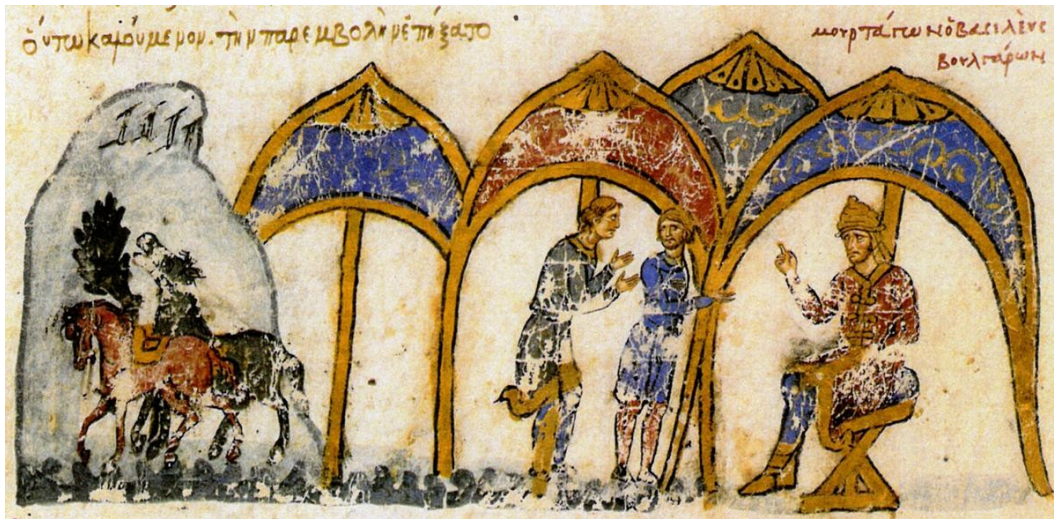 ὁύτω καλούμενον. τὴν παρεμβολὴν ἐπήξατο
μουρτάγων ὁ βασιλεὺς
βουλγάρων